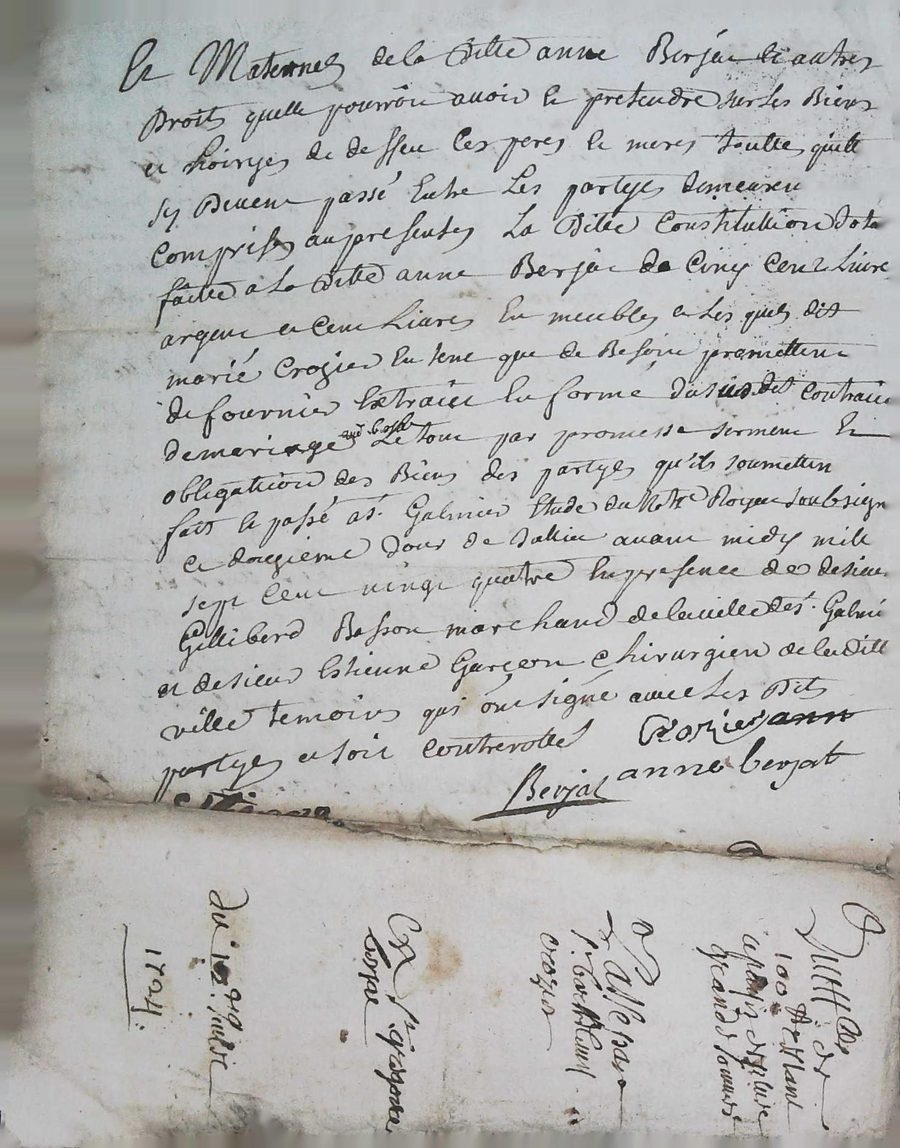 Et Maternel de la ditte anne Berjac et autres
Droits quelle pourroit avoir et pretendre sur les Biens
et hoiryes de desseu ces peres et meres toutte quitt
sy Devent passé Entre Les partyes demeuren
comprises au presentes La ditte Constitution dota
faitte a La ditte anne Berjac de Cinq Cent Livre
argent et cent Livres En meubles et Les quels dit
marié Crozier En tent que de Besoin promettent
de fournir Extraict En forme du susdit contrait
de mariage Le tout par promesse serment Et
obligation des Biens des partyes qu'ils soumetten
fait et passé a St. Galmier Etude du Notre Royal soubsign
ce douzieme Jour de Juillet avant midy mil
sept cent vingt quatre En presence de desieur
Gilliberd Basson marchand de la ville de St. Galmi
et de sieur Estienne Garçeon Chirurgien de la ditt
ville temoins qui ont signé avec Les Dits
partyes et soit controrolle Crozier ann
Berjat anne berjat
Quittance de
100
grand
passé par
Sr. bartelemy
crozier
Du 12 Juillet
1724.